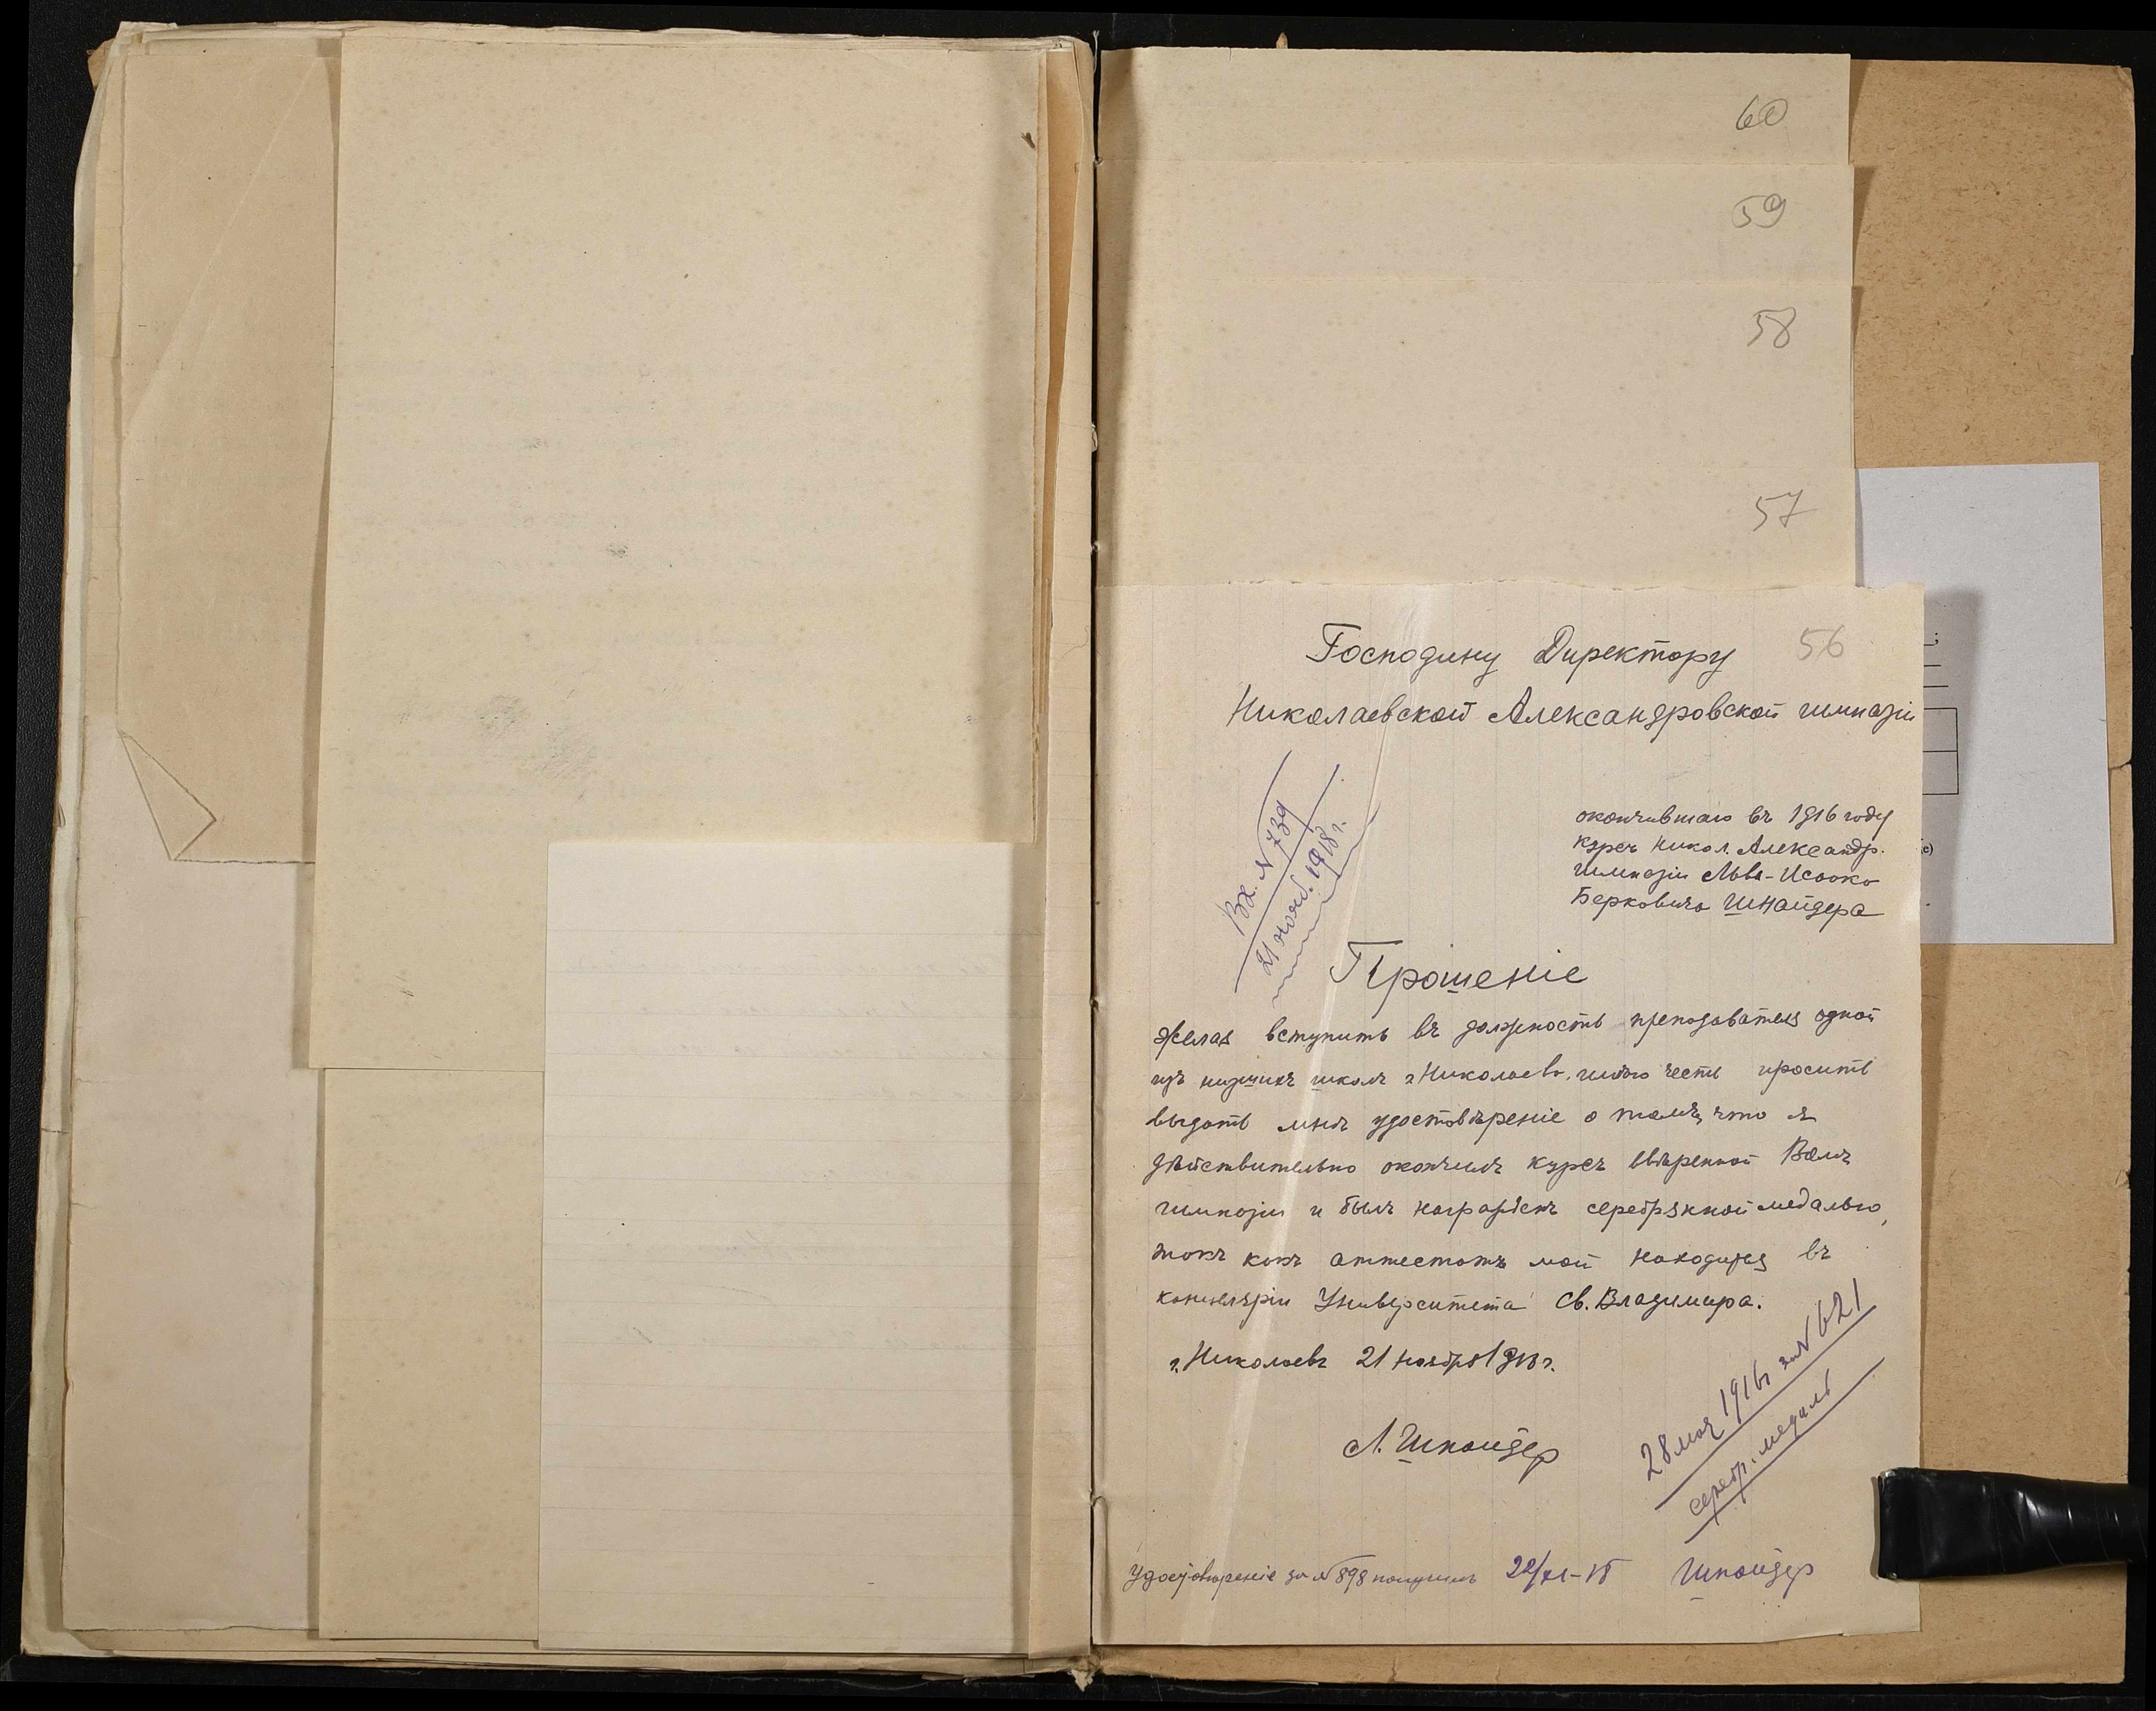 60
59
58
57
56
Господину Директору
Николаевской Александровской гимназіи
Вх. № 739
21 нояб. 1918 г.
окончившаго въ 1916 году
курсъ Никол. Александр.
гимназіи Льва-Исаака
Берковича Шнайдера
Прошеніе
Желая вступить въ должность преподавателя одной
изъ низшихъ школъ г. Николаева, имѣю честь просить
выдать мнѣ удостовѣреніе о томъ, что я
дѣйствительно окончилъ курсъ ввѣренной Вамъ
гимназіи и былъ награжденъ серебрянной медалью,
такъ какъ аттестатъ мой находится въ
канцеляріи Университета Св. Владимира.
г. Николаевъ 21 ноября 1918 г.
Л. Шнайдер
28 мая 1916 г за № 621
серебр. медаль
Удостовѣреніе за № 898 получилъ 22/XI-18 Шнайдер